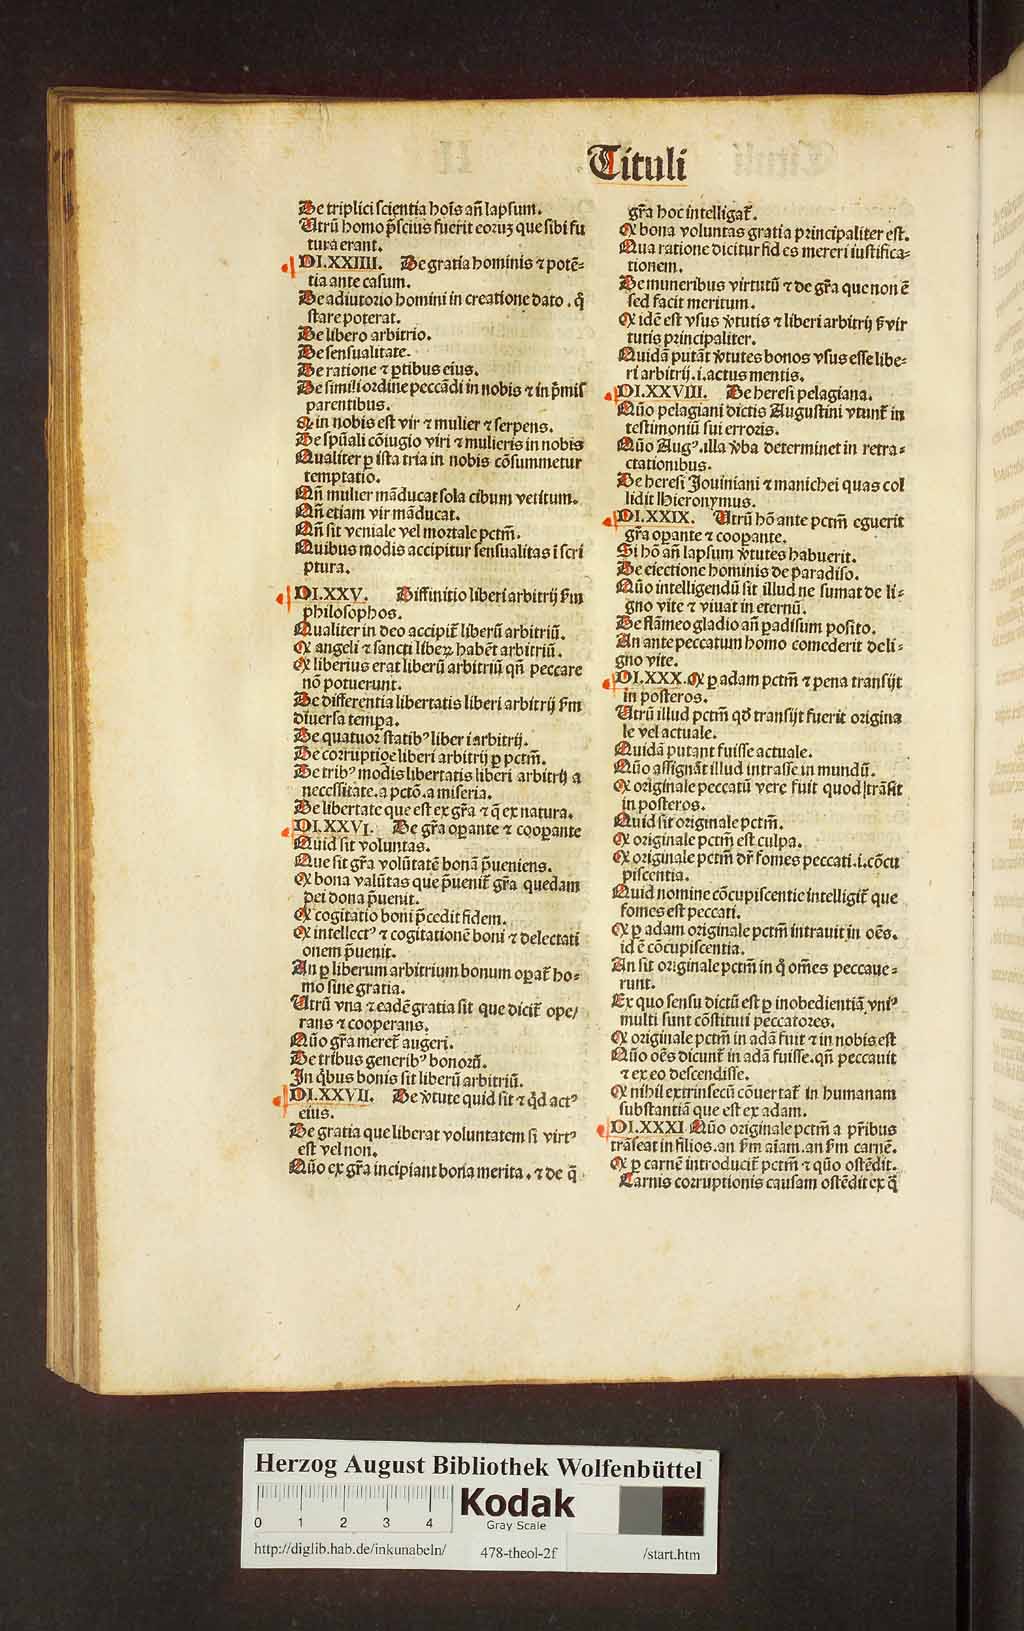 Tituli
De triplici scientia hoĩs añ lapsum.
Utrũ homo p̃scius fuerit eoruꝫ que sibi fu
tura erant.
DI.XXIIII. De gratia hominis ⁊ potẽ⸗
tia ante casum.
De adiutorio homini in creatione dato . q̃
stare poterat.
De libero arbitrio.
De sensualitate.
De ratione ⁊ ꝑtibus eius.
De simili ordine peccãdi in nobis ⁊ in p̃mis
parentibus.
Ꝙ in nobis est vir ⁊ mulier ⁊ serpens.
De spũali cõiugio viri ⁊ mulieris in nobis
Qualiter ꝑ ista tria in nobis cõsummetur
temptatio.
Qñ mulier mãducat sola cibum vetitum.
Qñ etiam vir mãducat.
Qñ sit veniale vel mortale pctm̃.
Quibus modis accipitur sensualitas ĩ scri
ptura.
DI.XXV. Diffinitio liberi arbitrij ẜm
philosophos.
Qualiter in deo accipit̃ liberũ arbitriũ.
Ꝙ angeli ⁊ sancti liberꝫ habẽt arbitriũ.
Ꝙ liberius erat liberũ arbitriũ qñ peccare
nõ potuerunt.
De differentia libertatis liberi arbitrij ẜm
diuersa tempa.
De quatuor statibꝰ liberi arbitrij.
De corruptiõe liberi arbitrij ꝑ pctm̃.
De tribꝰ modis libertatis liberi arbitrij a
necessitate. a pctõ. a miseria.
De libertate que est ex gr̃a ⁊ q̃ ex natura.
DI.XXVI. De gr̃a oꝑante ⁊ cooꝑante
Quid sit voluntas.
Que sit gr̃a volũtatẽ bonã p̃ueniens.
Ꝙ bona valũtas que p̃uenit̃ gr̃a quedam
dei dona p̃uenit.
Ꝙ cogitatio boni p̃cedit fidem.
Ꝙ intellectꝰ ⁊ cogitationẽ boni ⁊ delectati
onem p̃uenit.
An ꝑ liberum arbitrium bonum oꝑat̃ ho⸗
mo sine gratia.
Utrũ vna ⁊ eadẽ gratia sit que dicit̃ ope/
rans ⁊ cooperans.
Quõ gr̃a meret̃ augeri.
De tribus generibꝰ bonorũ.
In q̃bus bonis sit liberũ arbitriũ.
DI.XXVII. De ṽtute quid sit ⁊ q̃d actꝰ
eius.
De gratia que liberat voluntatem si virtꝰ
est vel non.
Quõ ex gr̃a incipiant bona merita . ⁊ de q̃
gr̃a hoc intelligat̃.
Ꝙ bona voluntas gratia principaliter est.
Qua ratione dicitur fides mereri iustifica⸗
tionem.
De muneribus virtutũ ⁊ de gr̃a que non ẽ
sed facit meritum.
Ꝙ idẽ est vsus ṽtutis ⁊ liberi arbitrij ß vir
tutis principaliter.
Quidã putãt ṽtutes bonos vsus esse libe⸗
ri arbitrij .i. actus mentis.
DI.XXVIII. De heresi pelagiana.
Quõ pelagiani dictis Augustini vtunt̃ in
testimoniũ sui erroris.
Quõ Augꝰ. illa ṽba determinet in retra⸗
ctationibus.
De heresi Jouiniani ⁊ manichei quas col
lidit Hieronymus.
DI.XXIX. Utrũ hõ ante pctm̃ eguerit
gr̃a oꝑante ⁊ cooꝑante.
Si hõ añ lapsum ṽtutes habuerit.
De eiectione hominis de paradiso.
Quõ intelligendũ sit illud ne sumat de li⸗
gno vite ⁊ viuat in eternũ.
De flãmeo gladio añ ꝑadisum posito.
An ante peccatum homo comederit de li⸗
gno vite.
DI.XXX. Ꝙ ꝑ adam pctm̃ ⁊ pena transijt
in posteros.
Utrũ illud pctm̃ qd̃ transijt fuerit origina
le vel actuale.
Quidã putant fuisse actuale.
Quõ assignãt illud intrasse in mundũ.
Ꝙ originale peccatũ vere fuit quod trãsit
in posteros.
Quid sit originale pctm̃.
Ꝙ originale pctm̃ est culpa.
Ꝙ originale pctm̃ dr̃ fomes peccati .i. cõcu
piscentia.
Quid nomine cõcupiscentie intelligit̃ que
fomes est peccati.
Ꝙ ꝑ adam originale pctm̃ intrauit in oẽs.
id ẽ cõcupiscentia.
An sit originale pctm̃ in q̃ om̃es peccaue⸗
runt.
Ex quo sensu dictũ est ꝑ inobedientiã vniꝰ
multi sunt cõstituti peccatores.
Ꝙ originale pctm̃ in adã fuit ⁊ in nobis est
Quõ oẽs dicunt̃ in adã fuisse. qñ peccauit
⁊ ex eo descendisse.
Ꝙ nihil extrinsecũ cõuertat̃ in humanam
substantiã que est ex adam.
DI.XXXI Quõ originale pctm̃ a pr̃ibus
trãseat in filios. an ẜm aĩam. an ẜm carnẽ.
Ꝙ ꝑ carnẽ introducit̃ pctm̃ ⁊ quõ ostẽdit.
Carnis corruptionis causam ostẽdit ex q̃
Herzog August Bibliothek Wolfenbüttel
Kodak
Gray Scale
0 1 2 3 4
http://diglib.hab.de/inkunabeln/ 478-theol-2f /start.htm